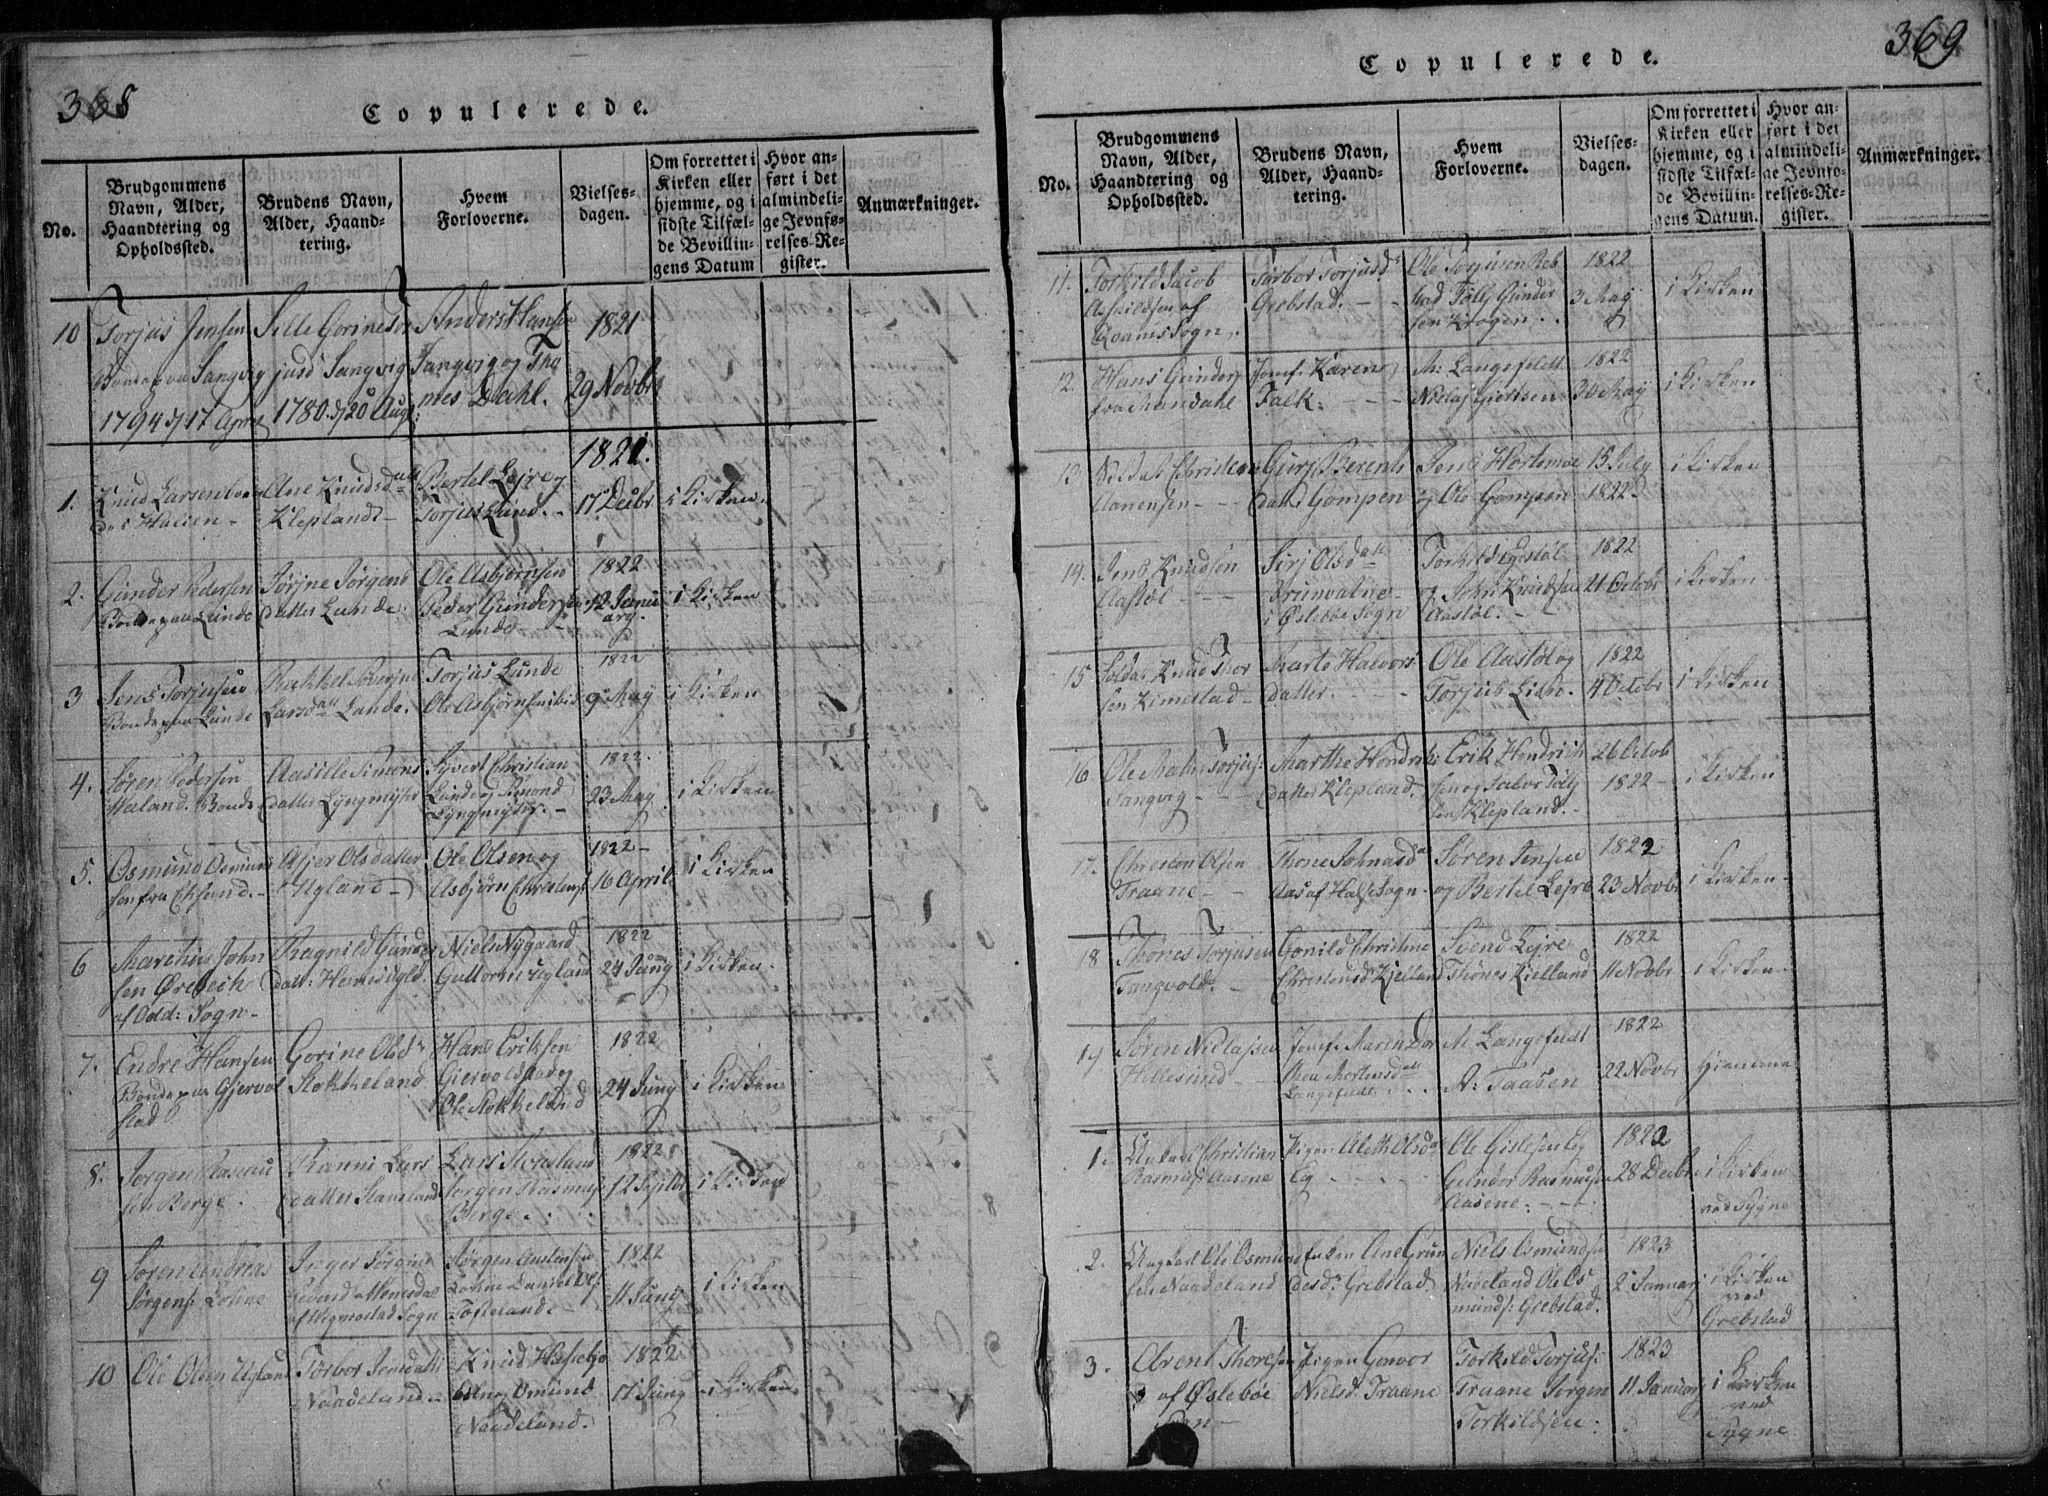 368
Copulerede.
No.
Brudgommens
Navn, Alder,
Haandtering og
Opholdssted.
Brudens Navn,
Alder, Haand-
tering.
Hvem
Forloverne.
Vielses-
dagen.
Om forrettet i
Kirken eller
hjemme, og i
sidste Tilfæl-
de Bevillin-
gens Datum
Hvor an-
ført i det
almindeli-
ge Jevnfø-
relses-Re-
gister.
Anmærkninger.
10
Torjus Jensen
Bonde paa Sangvig
1794 d/ 17 April
Sille Gorine Tor
jusd Sangvig
1780. d/ 20 Aug:
Anders Hansen
Tangvig og Tho
mes Dahl.
1821
29 Novbr
1821.
1.
Knud Larsen
Ane Knudsdatt
Klepland
Bertel Lejre og
Torjus Lund.
17 Decbr
i Kirken
2.
Gunder Pedersen
Bonde paa Lunde
Jørgens
datter Lunde.
Ole Asbjørnsen
Peder Gundersen
Lunde
1822
12 Janu
arg.
i Kirken
3
Jens Torjusen
Bonde paa Lunde
Larsdatt Lande.
Torjus Lunde
Ole Asbjørnsen
1822
9 May
i Kirken
4.
Søren Pedersen
Haland. Bonde
Aasille Simons
datter Lyngmyhr
Syvert Christian
Lunde og Simond
Lyngmyhr.
1822.
23 May
i Kirken
5.
Osmund Osmund
sen fra
Asjer Olsdatter
Ugland
Ole Olsen og
Asbjørn Christens:
1822
16 April
i Kirken
6
Marthin John
sen Ørebech
af Odd: Sogn
Ragnild Gunders
datt:
Niels Nygaard
Guttorm Ugland
1822
24 Juny
i Kirken
7.
Endre Hansen
Bonde paa Gjervol
stad
Gorine Olsd
Stokkeland
Hans Eriksen
Giervolstad og
Ole Stokkeland
1822
24 Juny
i Kirken
8.
Jørgen
sen Berge.
Lars
datter Staveland
Lars
Jørgen Rasmus:
Berge.
1822
12 Septbr
i Kirken
9
Søren Andreas
Jørgens: Lohne
Inger Jørgine
af Øgrestad Sogn
Jørgen
Lohne Daniel
Toftelande
1822
11 Juny
i Kirken
10
Ole Olsen Ugland
Torbor Jensdatt
Naadeland
Knud
og Omund
Naadeland.
1822
17 Juny
i Kirken
369
Copulerede.
No.
Brudgommens
Navn, Alder,
Haandtering og
Opholdssted.
Brudens Navn,
Alder, Haand-
tering.
Hvem
Forloverne.
Vielses-
dagen.
Om forrettet i
Kirken eller
hjemme, og i
sidste Tilfæl-
de Bevillin-
gens Datum.
Hvor an-
ført i det
almindeli-
ge Jevnfø-
relses-Re-
gister.
Anmærkninger.
11.
Torkild Jacob
Aspildsen af
Qvams Sogn
Torbor Torjusd
Grebstad.
Ole Torjusen Reb
stad Tolli Gunder
sen Krogen.
1822
3 May
i Kirken
12
Hans Gunders
fra Mandahl
Jomf: Karen
Falk.
M: Langefeldt
Niclas Giertsen
1822
30 May
i Kirken
13
Christian
Aanensen
Guri Berents
datt: Gompen
Jens Hortemoe
og Ole Gompen
15 July
1822
i Kirken
14.
Jens Knudsen
Aastøl
Siri Olsdatt
i Øslebøe Sogn
Torkild Egestøl
og John Knudsen
Aastøl.
1822
21 Octobr
i Kirken
15
Soldat Knud Thor
sen Kimestad
Marte Halvors
datter.
Ole Aastøl og
Torjus Lien.
1822
4 Octobr
i Kirken
16
Ole Torjus:
Tangvig
Marthe Hendriks
datter Klepland.
Erik Hendrich
sen og Salve Tolli
sen Klepland.
26 Octob
1822
i Kirken
17.
Christen Olsen
Traane
Thone Johnasd
Aas af Halse Sogn
Søren Jensen
og Bertel Lejre
1822
23 Novbr
i Kirken
18
Thones Torjusen
Tangvold.
Gonild Christine
Christensd Kjelland
Svend Lejre
Thones Kjelland
1822
11 Novbr
i Kirken
19
Søren Niclasen
Hillesund
Jomf: Maren Dor
thea Mortensdatt
Langefeldt
M Langefeldt
A: Taasen
1822
22 Novbr
hjemme
1.
Ungkarl Christian
Rasmus: Aasene
Pigen Aleth Olsd
Eg
Ole Gislesen Eg
Gunder Rasmusen
Aasene.
1822
28 Decbr
i Kirken
ved Sygne
2.
Ungkarl Ole Osmund
sen Naadeland
Enken Ane Grun
desd Grebstad
Niels Osmundsen
Nadeland Ole Os
munds: Grebstad.
1823
2 Januar
i Kirken
ved
Grebstad
3.
Arent Thoresen
af Øslebøe
Pigen Gonvor
Nielsd. Traane
Torkild Torjus:
Traane Jørgen
Torkildsen.
1823
11 Januar
i Kirken
ved
Sygne